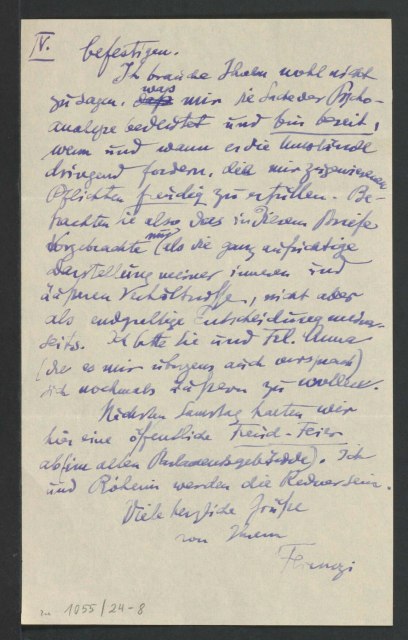 IV. befestigen.
Ich brauche Ihnen wohl nicht
zu sagen, was mir die Sache der Psycho-
analyse bedeutet und bin bereit,
wenn und wann es die Umstände
dringend fordern, die mir zugewiesenen
Pflichten freudig zu erfüllen. Be-
trachten Sie also das in diesem Briefe
Vorgebrachte nur als die ganz aufrichtige
Darstellung meiner inneren und
äußeren Verhältnisse, nicht aber
als endgültige Entscheidung meiner-
seits. Ich bitte Sie und Frl. Anna
(der es mir übrigens auch versprach)
sich nochmals äußern zu wollen.
Nächsten Samstag halten wir
hier eine öffentliche Freud-Feier
ab (im alten Parlamentsgebäude). Ich
und Róheim werden die Redner sein.
Viele herzliche Grüße
von Ihrem
Ferenczi
1055/24-8